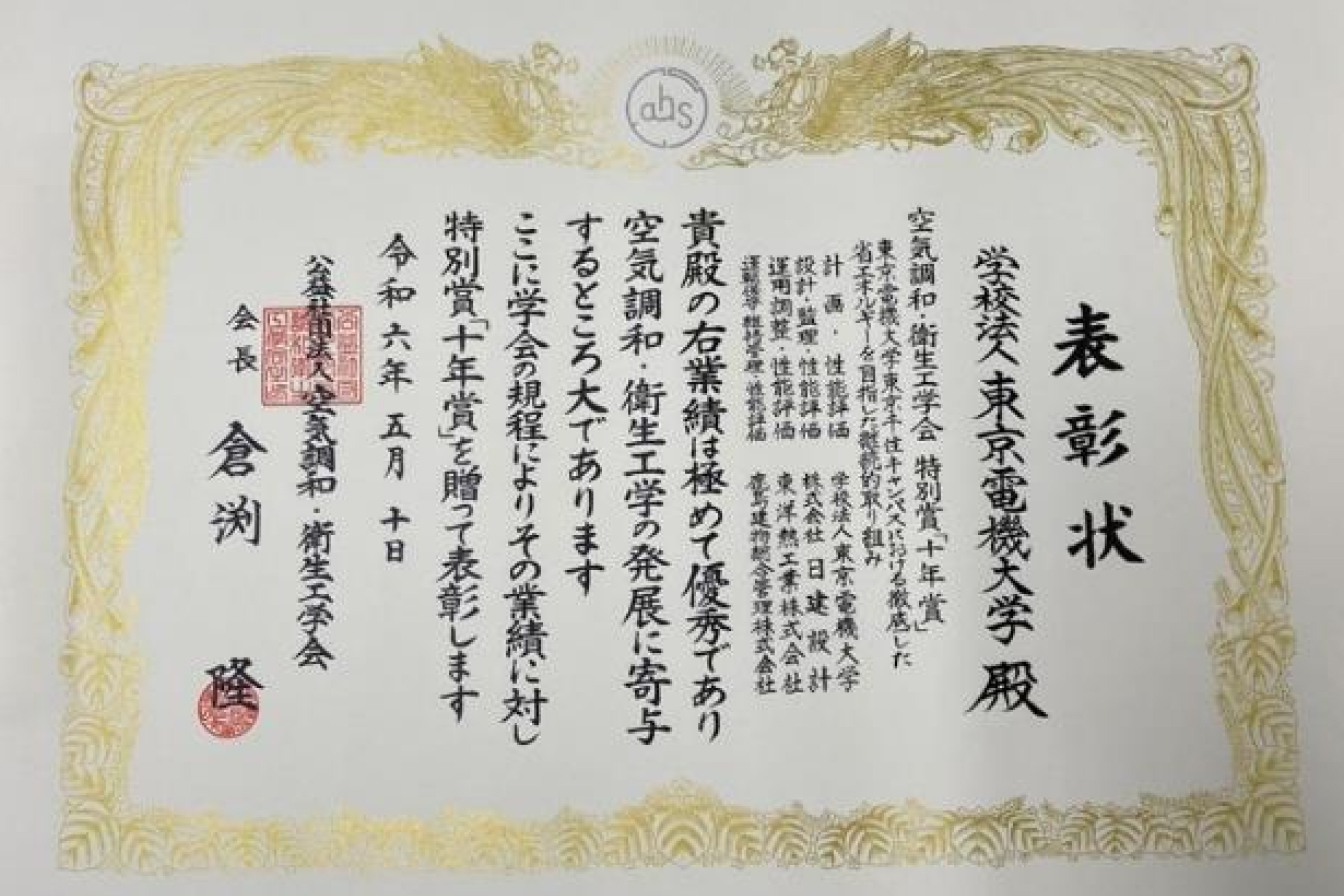 ahs
表彰状
学校法人 東京電機大学 殿
空気調和・衛生工学会 特別賞「十年賞」
東京電機大学東京千住キャンパスにおける徹底した
省エネルギーを目指した継続的取り組み
計画・性能評価 学校法人東京電機大学
設計・監理・性能評価 株式会社日建設計
運用調整・性能評価 東洋熱工業株式会社
維持管理・性能評価 建物総合管理株式会社
貴殿の右業績は極めて優秀であり
空気調和・衛生工学の発展に寄与
するところ大であります
ここに学会の規程によりその業績に対し
特別賞「十年賞」を贈って表彰します
令和六年五月十日
公益社団法人 空気調和・衛生工学会
会長 倉渕 隆